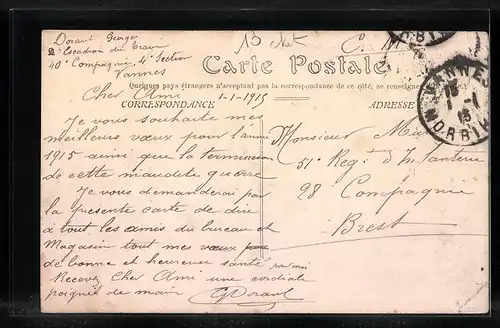 Dorant Georges
2e Escadron du Train
40e Compagnie 4e Section
Vannes
13
C. M
Carte Postale
Quelques pays étrangers n'acceptant pas la correspondance de ce côté, se renseigner
Cher Ami 1-1-1915
CORRESPONDANCE
ADRESSE
VANNES
1-1
15
MORBIHAN
Je vous souhaite mes
meilleurs vœux pour l'année
1915 ainsi que la terminaison
de cette maudite guerre
Je vous demanderai par
la présente carte de dire
à tout les amis du bureau et
Magasin tout mes vœux
de bonne et heureuse santé pour moi
Recevez Cher Ami une cordiale
poignée de main GDorant
Monsieur
51e Regt d'Infanterie
28 Compagnie
Brest